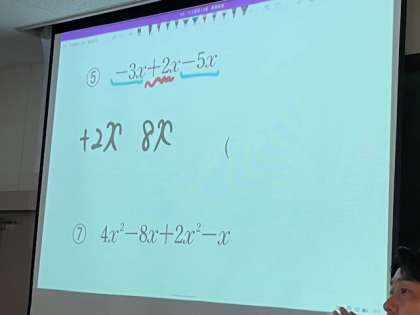 ⑤ −3x+2x−5x
+2x 8x (
⑦ 4x²−8x+2x²−x